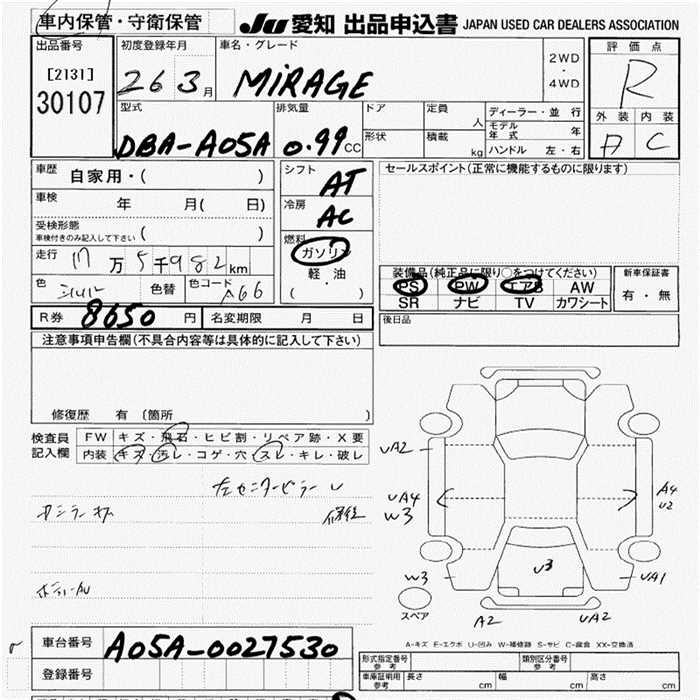 車内保管・守衛保管 JU 愛知 出品申込書 JAPAN USED CAR DEALERS ASSOCIATION
出品番号 初度登録年月 車名・グレード 2WD・4WD 評価点
[2131] 30107 26 3月 MiRAGE R
型式 排気量 ドア 定員 人 ディーラー・並行 外装 内装
DBA-A05A 0.99CC 形状 積載 kg モデル年式 年 A C
ハンドル 左・右
車歴 自家用・( ) シフト AT セールスポイント(正常に機能するものに限ります)
車検 年 月( 日) 冷房 AC
受検形態 車検付きのみ記入して下さい ( ) 燃料 ガソリン
走行 万5千982km 軽・油 装備品(純正品に限り○をつけてください) 新車保証書
色 シルバー 色替 色コード A66 ( ・ ) PS PW エアB AW 有・無
SR ナビ TV カワシート
R券 8650円 名変期限 月 日 後日品
注意事項申告欄(不具合内容等は具体的に記入して下さい)
修復歴 有 (箇所 )
検査員 FW キズ・飛石・ヒビ割・リペア跡・X要
記入欄 内装 キズ・汚レ・コゲ・穴・スレ・キレ・破レ
UA2
左センターピラー
UA4 A4
W3 U2
U3
W3 UA1
スペア A2 UA2
A-キズ E-エクボ U-凹み W-補修跡 S-サビ C-腐食 XX-交換済
車台番号 A05A-0027530 形式指定番号 参考 類別区分番号 参考
登録番号 車庫証明用 参考 長さ cm 幅 cm 高さ cm